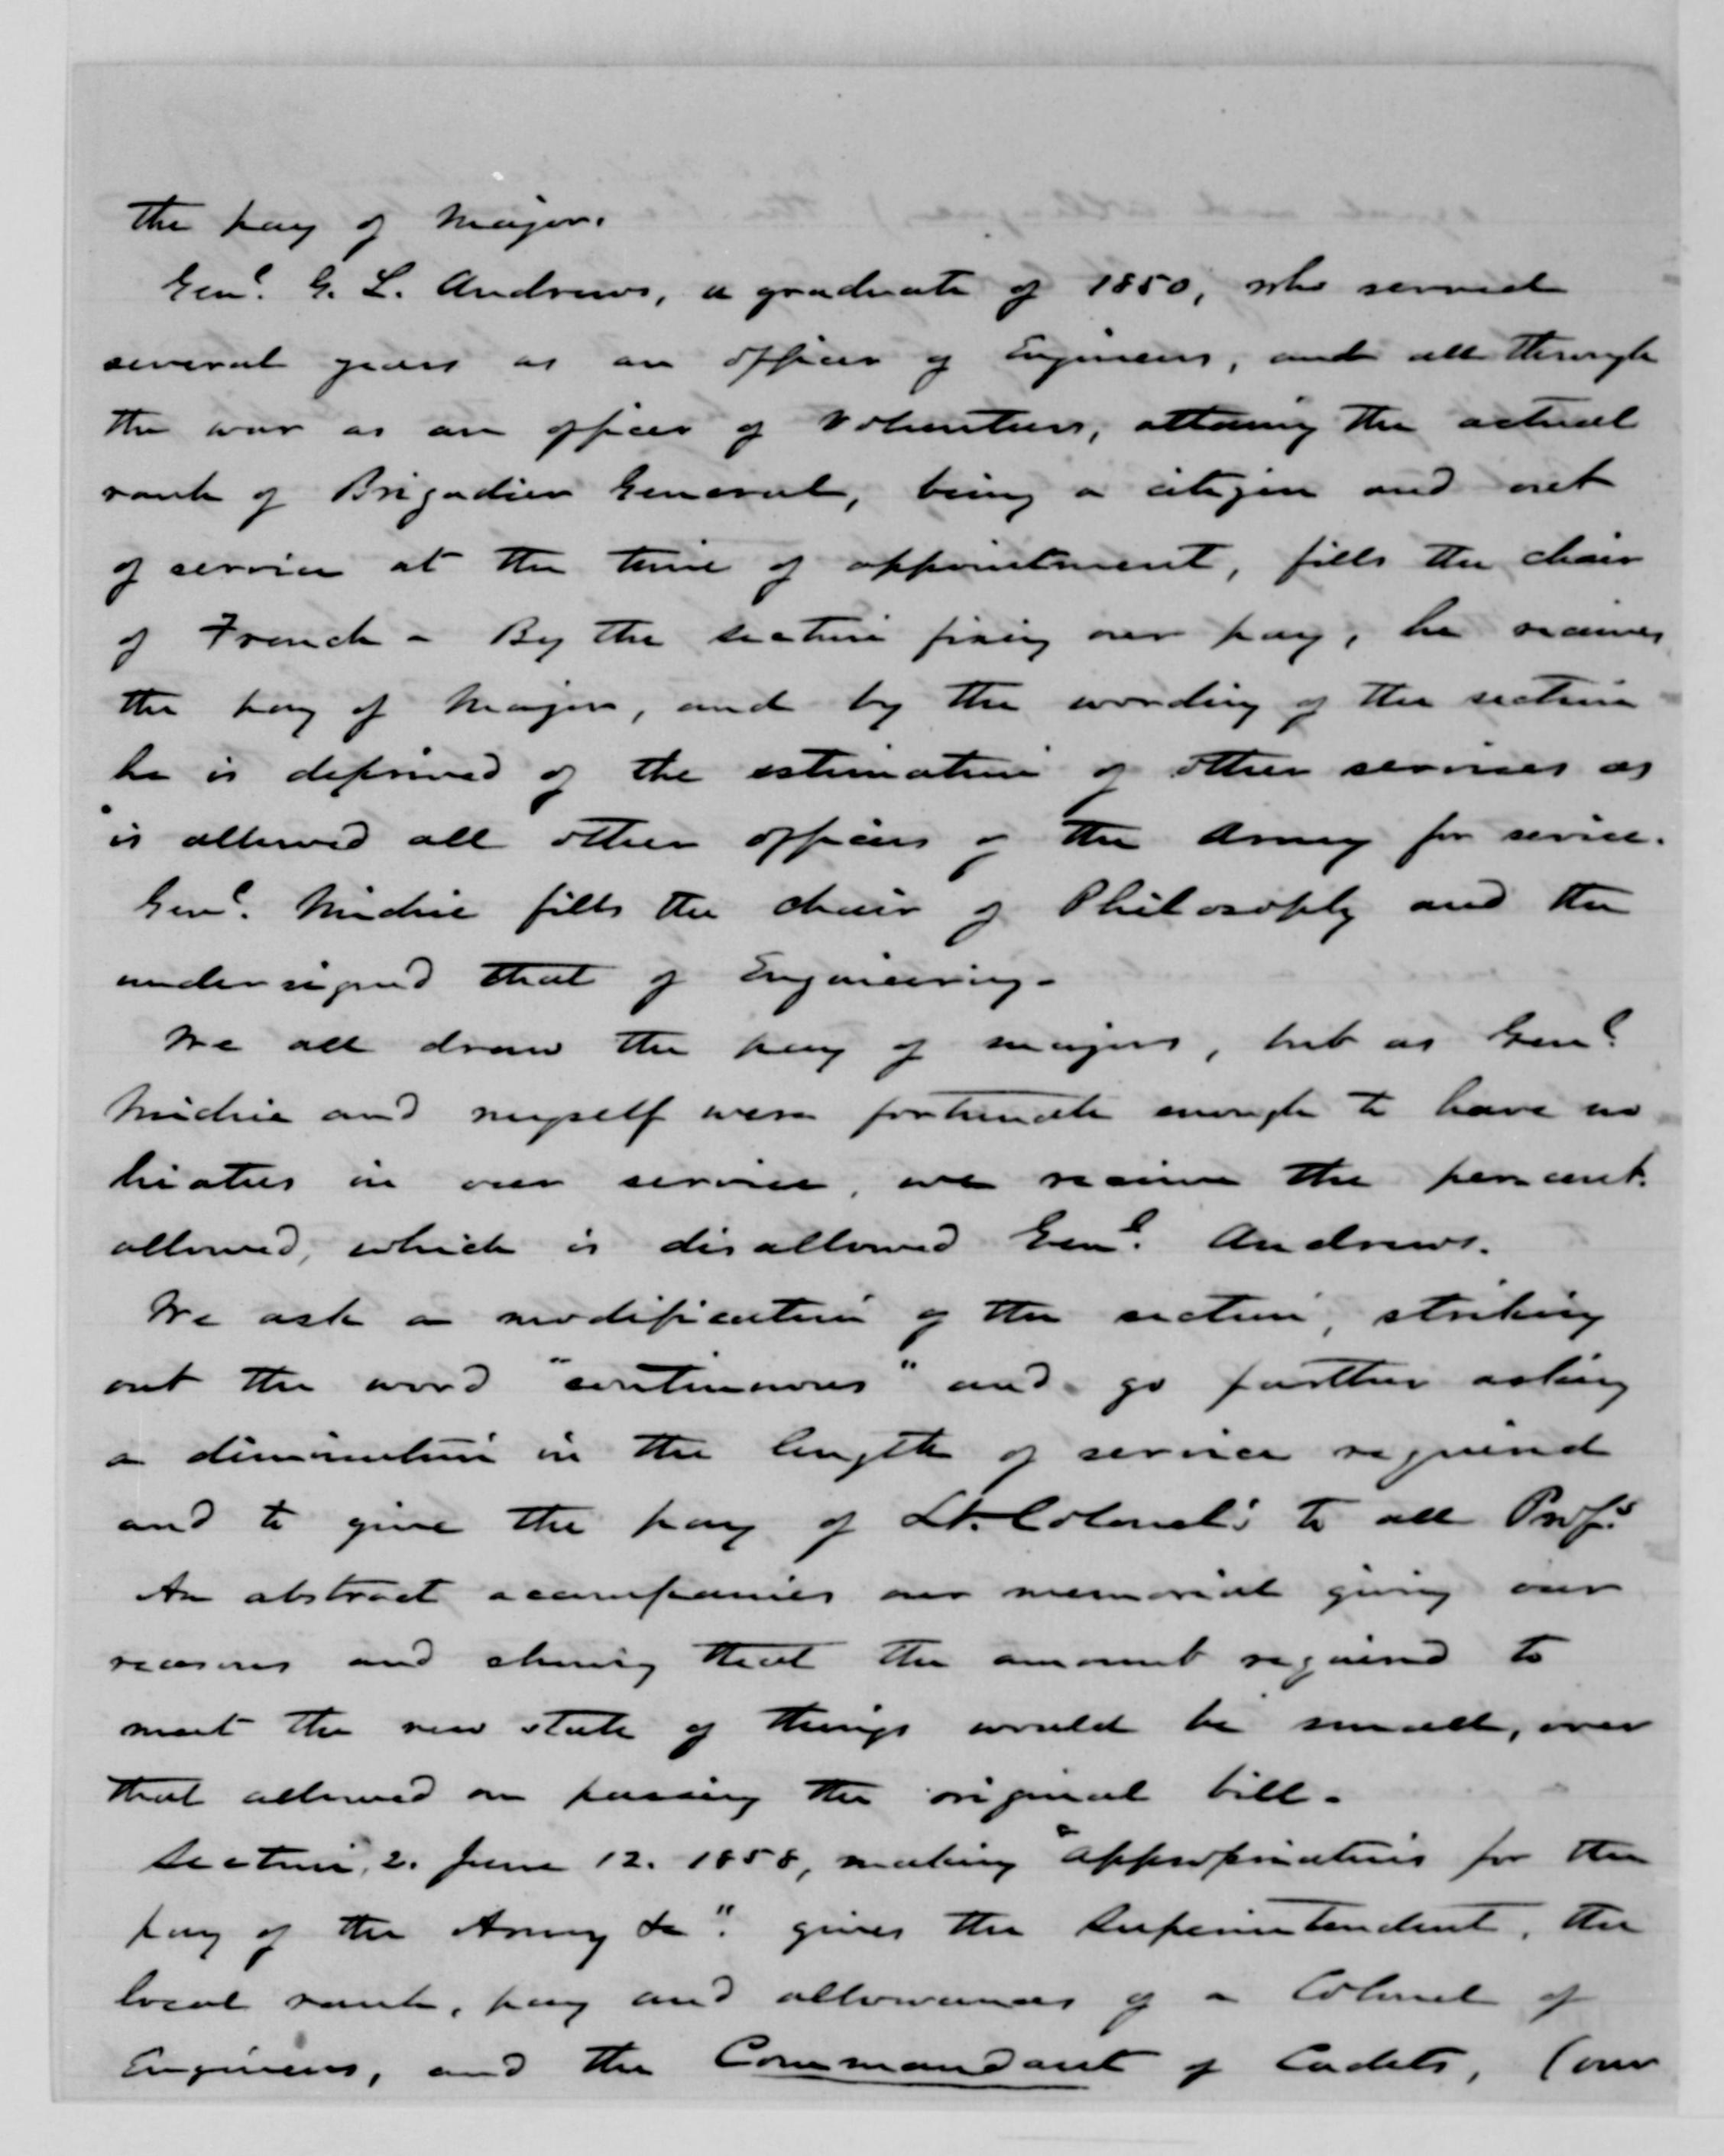 the pay of Major.
Gen<sup>l</sup>. G. L. Andrews, a graduate of 1850, who served
several years as an officer of Engineers, and all through
the war as an officer of Volunteers, attaing the actual
rank of Brigadier General, being a citizen and out
of service at the time of appointment, fills the chair
of French - By the section fixing our pay, he receives
the pay of Major, and by the wording of the section
he is deprived of the estimation of other services as
is allowed all other officers of the Army for service.
Gen<sup>l</sup>. Michie fills the chair of Philosophy and the
undersigned that of Engineering.
We all draw the pay of majors, but as Gen<sup>l</sup>.
Michie and myself were fortunate enough to have no
hiatus in our service, we receive the per cent.
allowed, which is disallowed Gen<sup>l</sup>. Andrews.
We ask a modification of the section, striking
out the word "continuous" and go further asking
a diminution in the length of service required
and to give the pay of Lt. Colonel's to all Prof<sup>s</sup>.
An abstract accompanies our memorial giving our
reasons and showing that the amount required to
meet the new state of things would be small, over
that allowed on passing the original bill.
Section, 2. June 12. 1858, making "appropriations for the
pay of the Army &c". gives the Superintendent, the
local rank, pay and allowances of a Colonel of
Engineers, and the Commandant of Cadets, (our